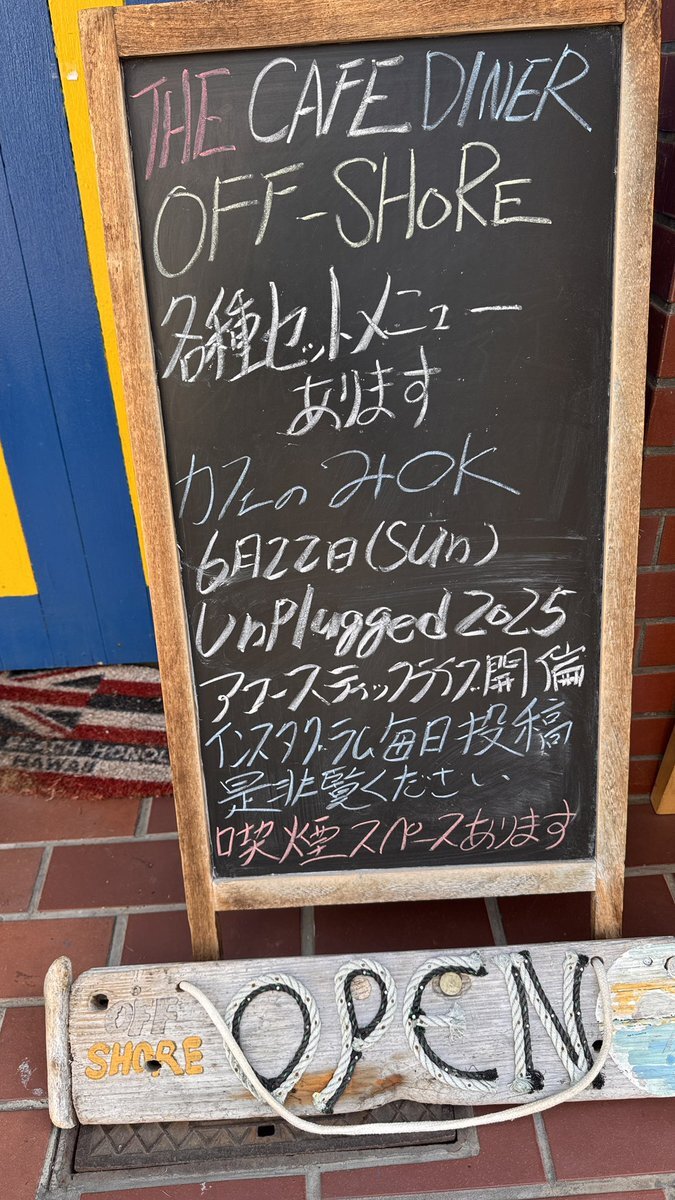 THE CAFE DINER
OFF-SHORE
各種セットメニュー
あります
カフェのみOK
6月22日(Sun)
UnPlugged 2025
アコースティックライブ開催
インスタグラム毎日投稿
是非覧ください
喫煙スペースあります
OFF
SHORE
OPEN
HAWAII